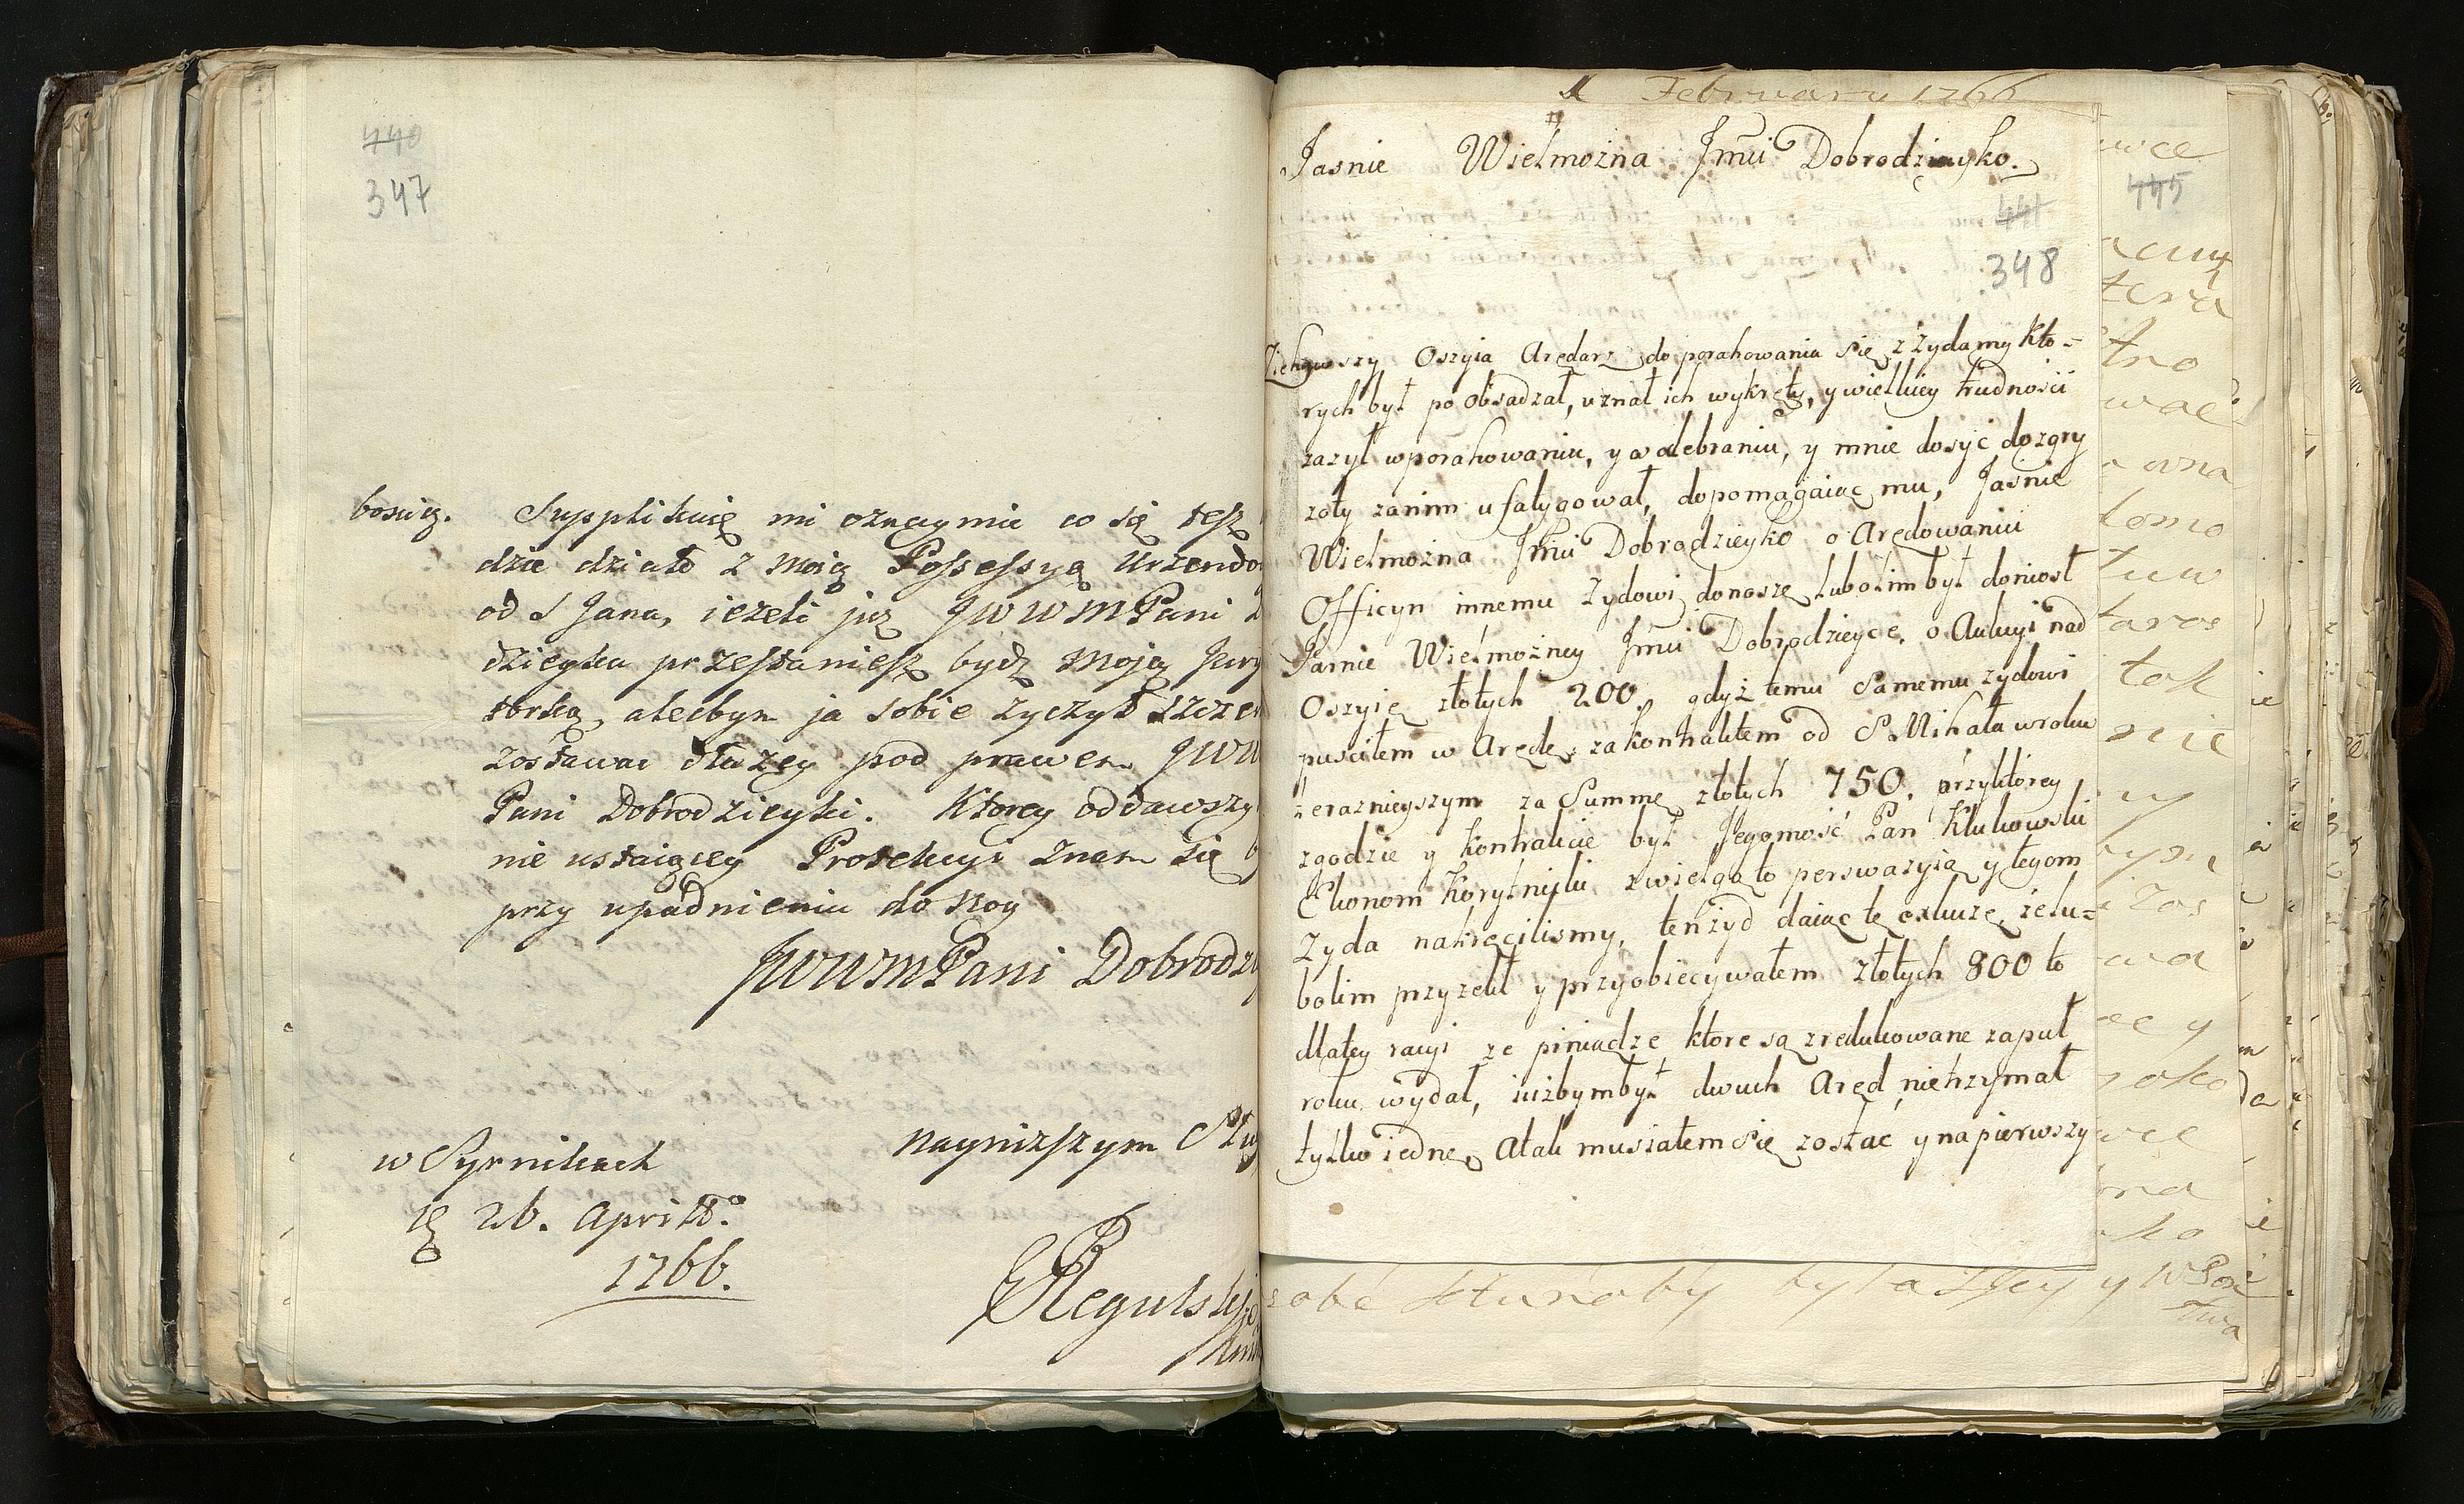 440
347
bosiią. Supplikuię mi oznaymic co się tesz
dzie działo z moią Possessyą Urzendo
od S Jana, iezeli iuz JWWMPani D
dzieyka przestaniesz bydz moją Jury
torką, alecbym ja sobie zyczył szcze
zostawac dłuzey pod prawem JWW
Pani Dobrodzieyki. Ktorey oddawszy
nie ustaiącey Protekcyi znam się
przy upadnieniu do Nog
JWWMPani Dobrodzi
naynizszym Słu
w Syrnikach
26. Aprill
1766.
Regulski
Februaru 1766
Jasnie Wielmożna Jmći Dobrodzieyko.
441
348
Oszyia Arędarz do porahowania się z Żydamy kto-
rych był po obsadzał, uznał ich wykręty, y wielkiey trudności
zazył w porahowaniu, y w odebraniu, y mnie dosyć do zgry
zoty zanim ufatygował, dopomagaiąc mu, Jasnie
Wielmożna Jmći Dobrodzieyko o Arędowaniu
Officyn innemu Żydowi donoszę, lubolim był doniosł
Jasnie Wielmożney Jmći Dobrodzieyce, o Aukcyi nad
Oszyię złotych 200, gdyż temu samemu zydowi
pusciłem w Arędę, zakontraktem od S. Mihała w roku
terazniegszym za Summę złotych 750. przyktórey
zgodzie y kontrakcie był Jegomość Pan Klukowski
Ekonom Korytnijki zwielgą to perswazyią y tegom
Żyda nakręcilismy, tenżyd daiąc tę exkuzę, żelu=
bolim przyzekł y przyobiecywałem złotych 800 to
dlatey racyi ze piniądze ktore są zredukowane zapuł
roku wydał, iużbymbył dwuch Aręd nietrzymał
tylko iednę, Atak musiałem się zostać y na pierwszy
445
tno
tok
nie
zobe by była y